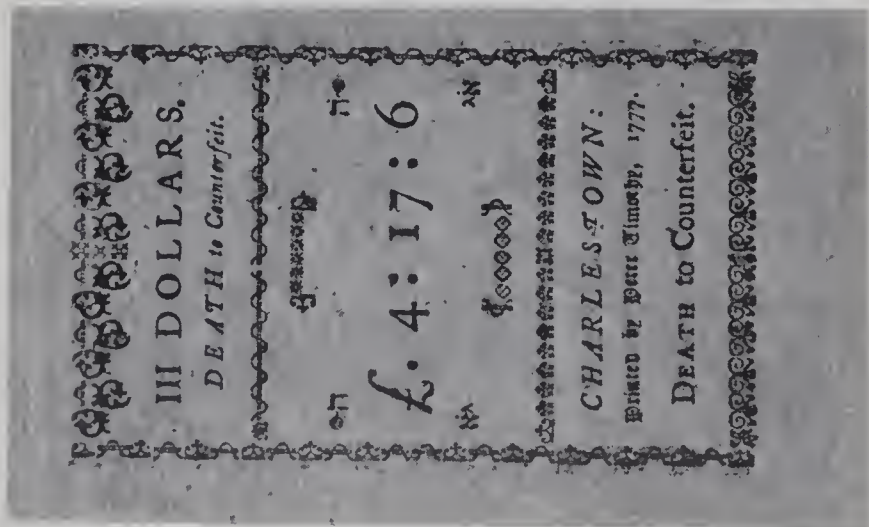 III DOLLARS.
DEATH to Counterfeit.
£. 4 : 17 : 6
CHARLESTOWN:
Printed by Peter Timothy, 1777.
DEATH to Counterfeit.